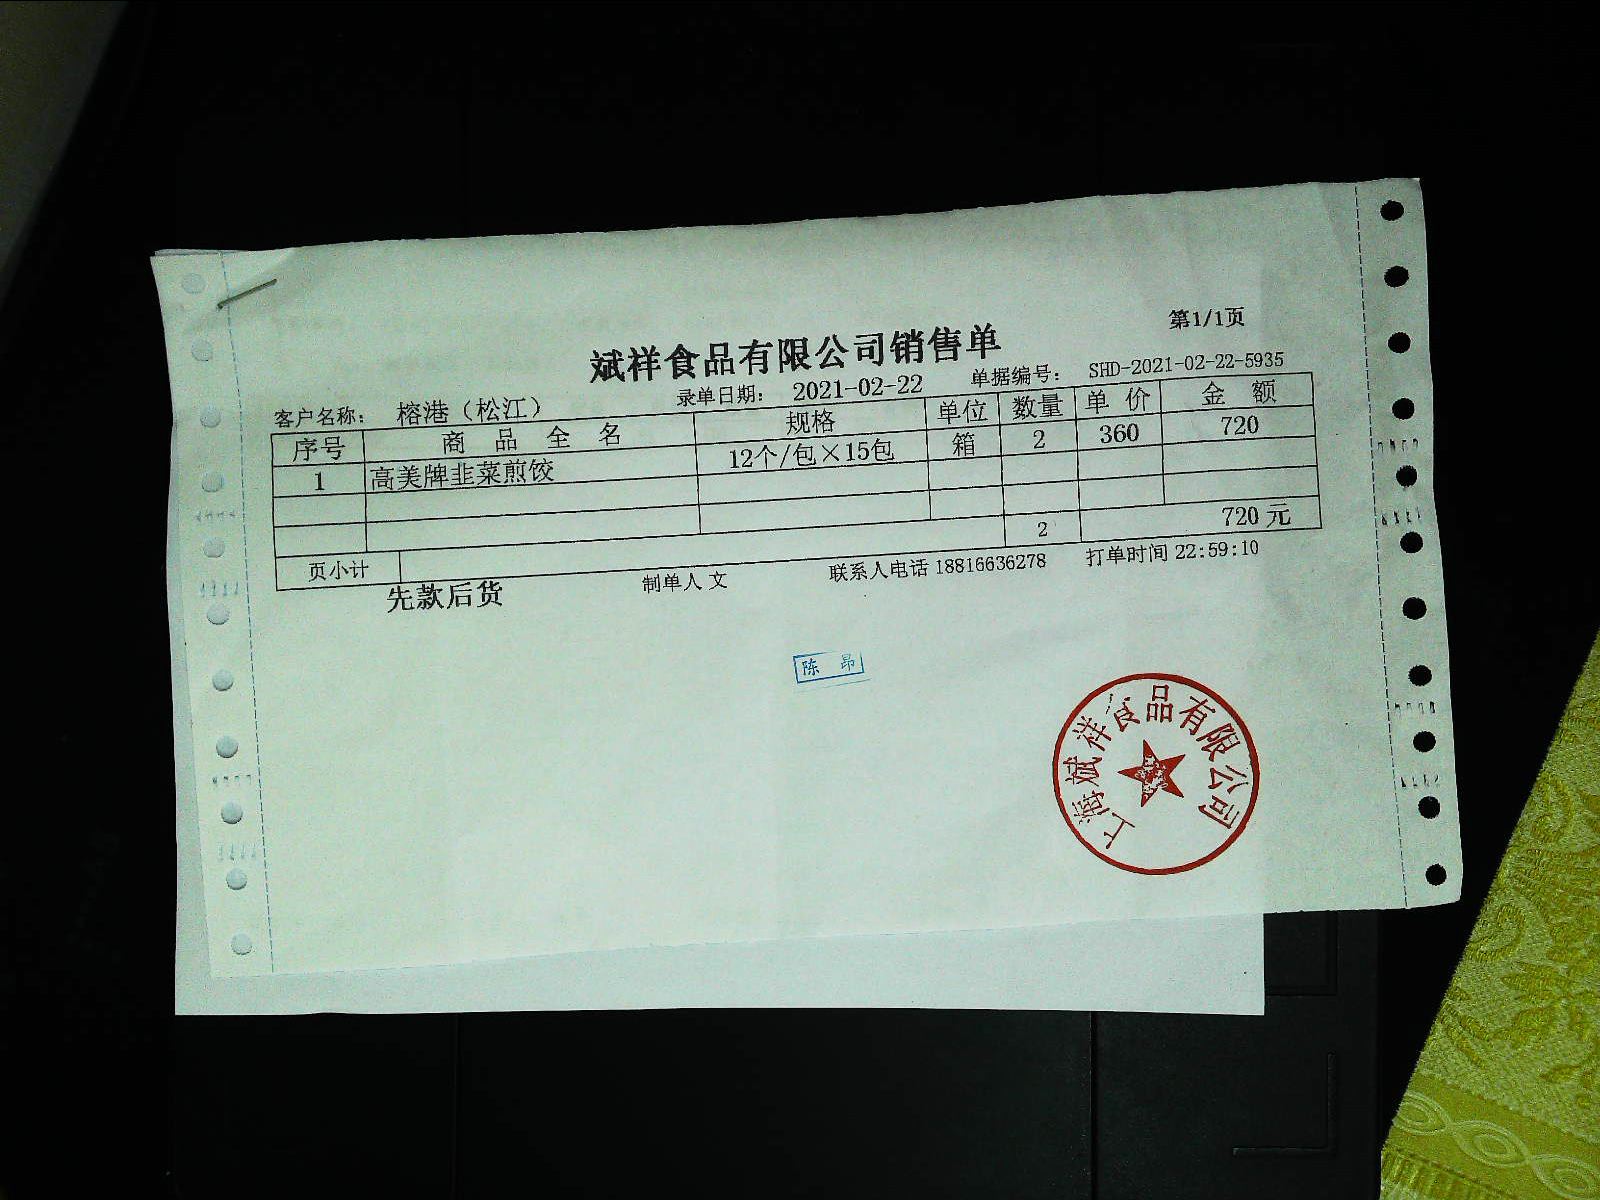 第1/1页
斌祥食品有限公司销售单
客户名称： 榕港（松江） 录单日期： 2021-02-22 单据编号： SHD-2021-02-22-5935
序号 商 品 全 名 规格 单位 数量 单 价 金 额
1 高美牌韭菜煎饺 12个/包×15包 箱 2 360 720
页小计 2 720 元
先款后货 制单人 文 联系人电话 18816636278 打单时间 22:59:10
陈 昂
上海斌祥食品有限公司